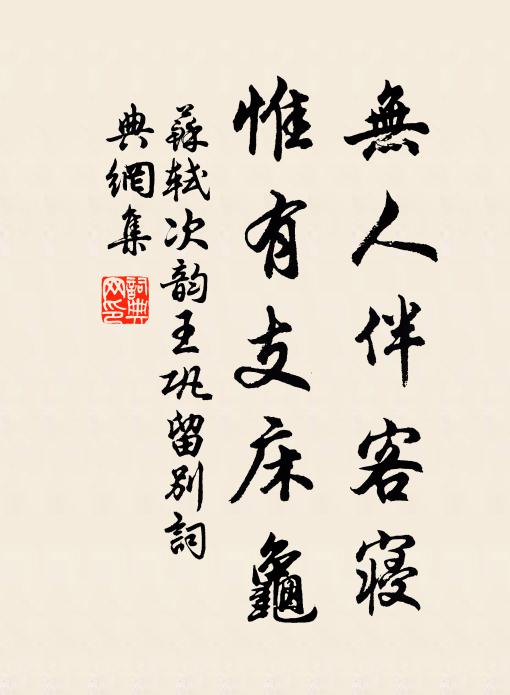 無人伴客寢
惟有支床龜
蘇軾次韵王巩留别詞
典網集
詞典
网印